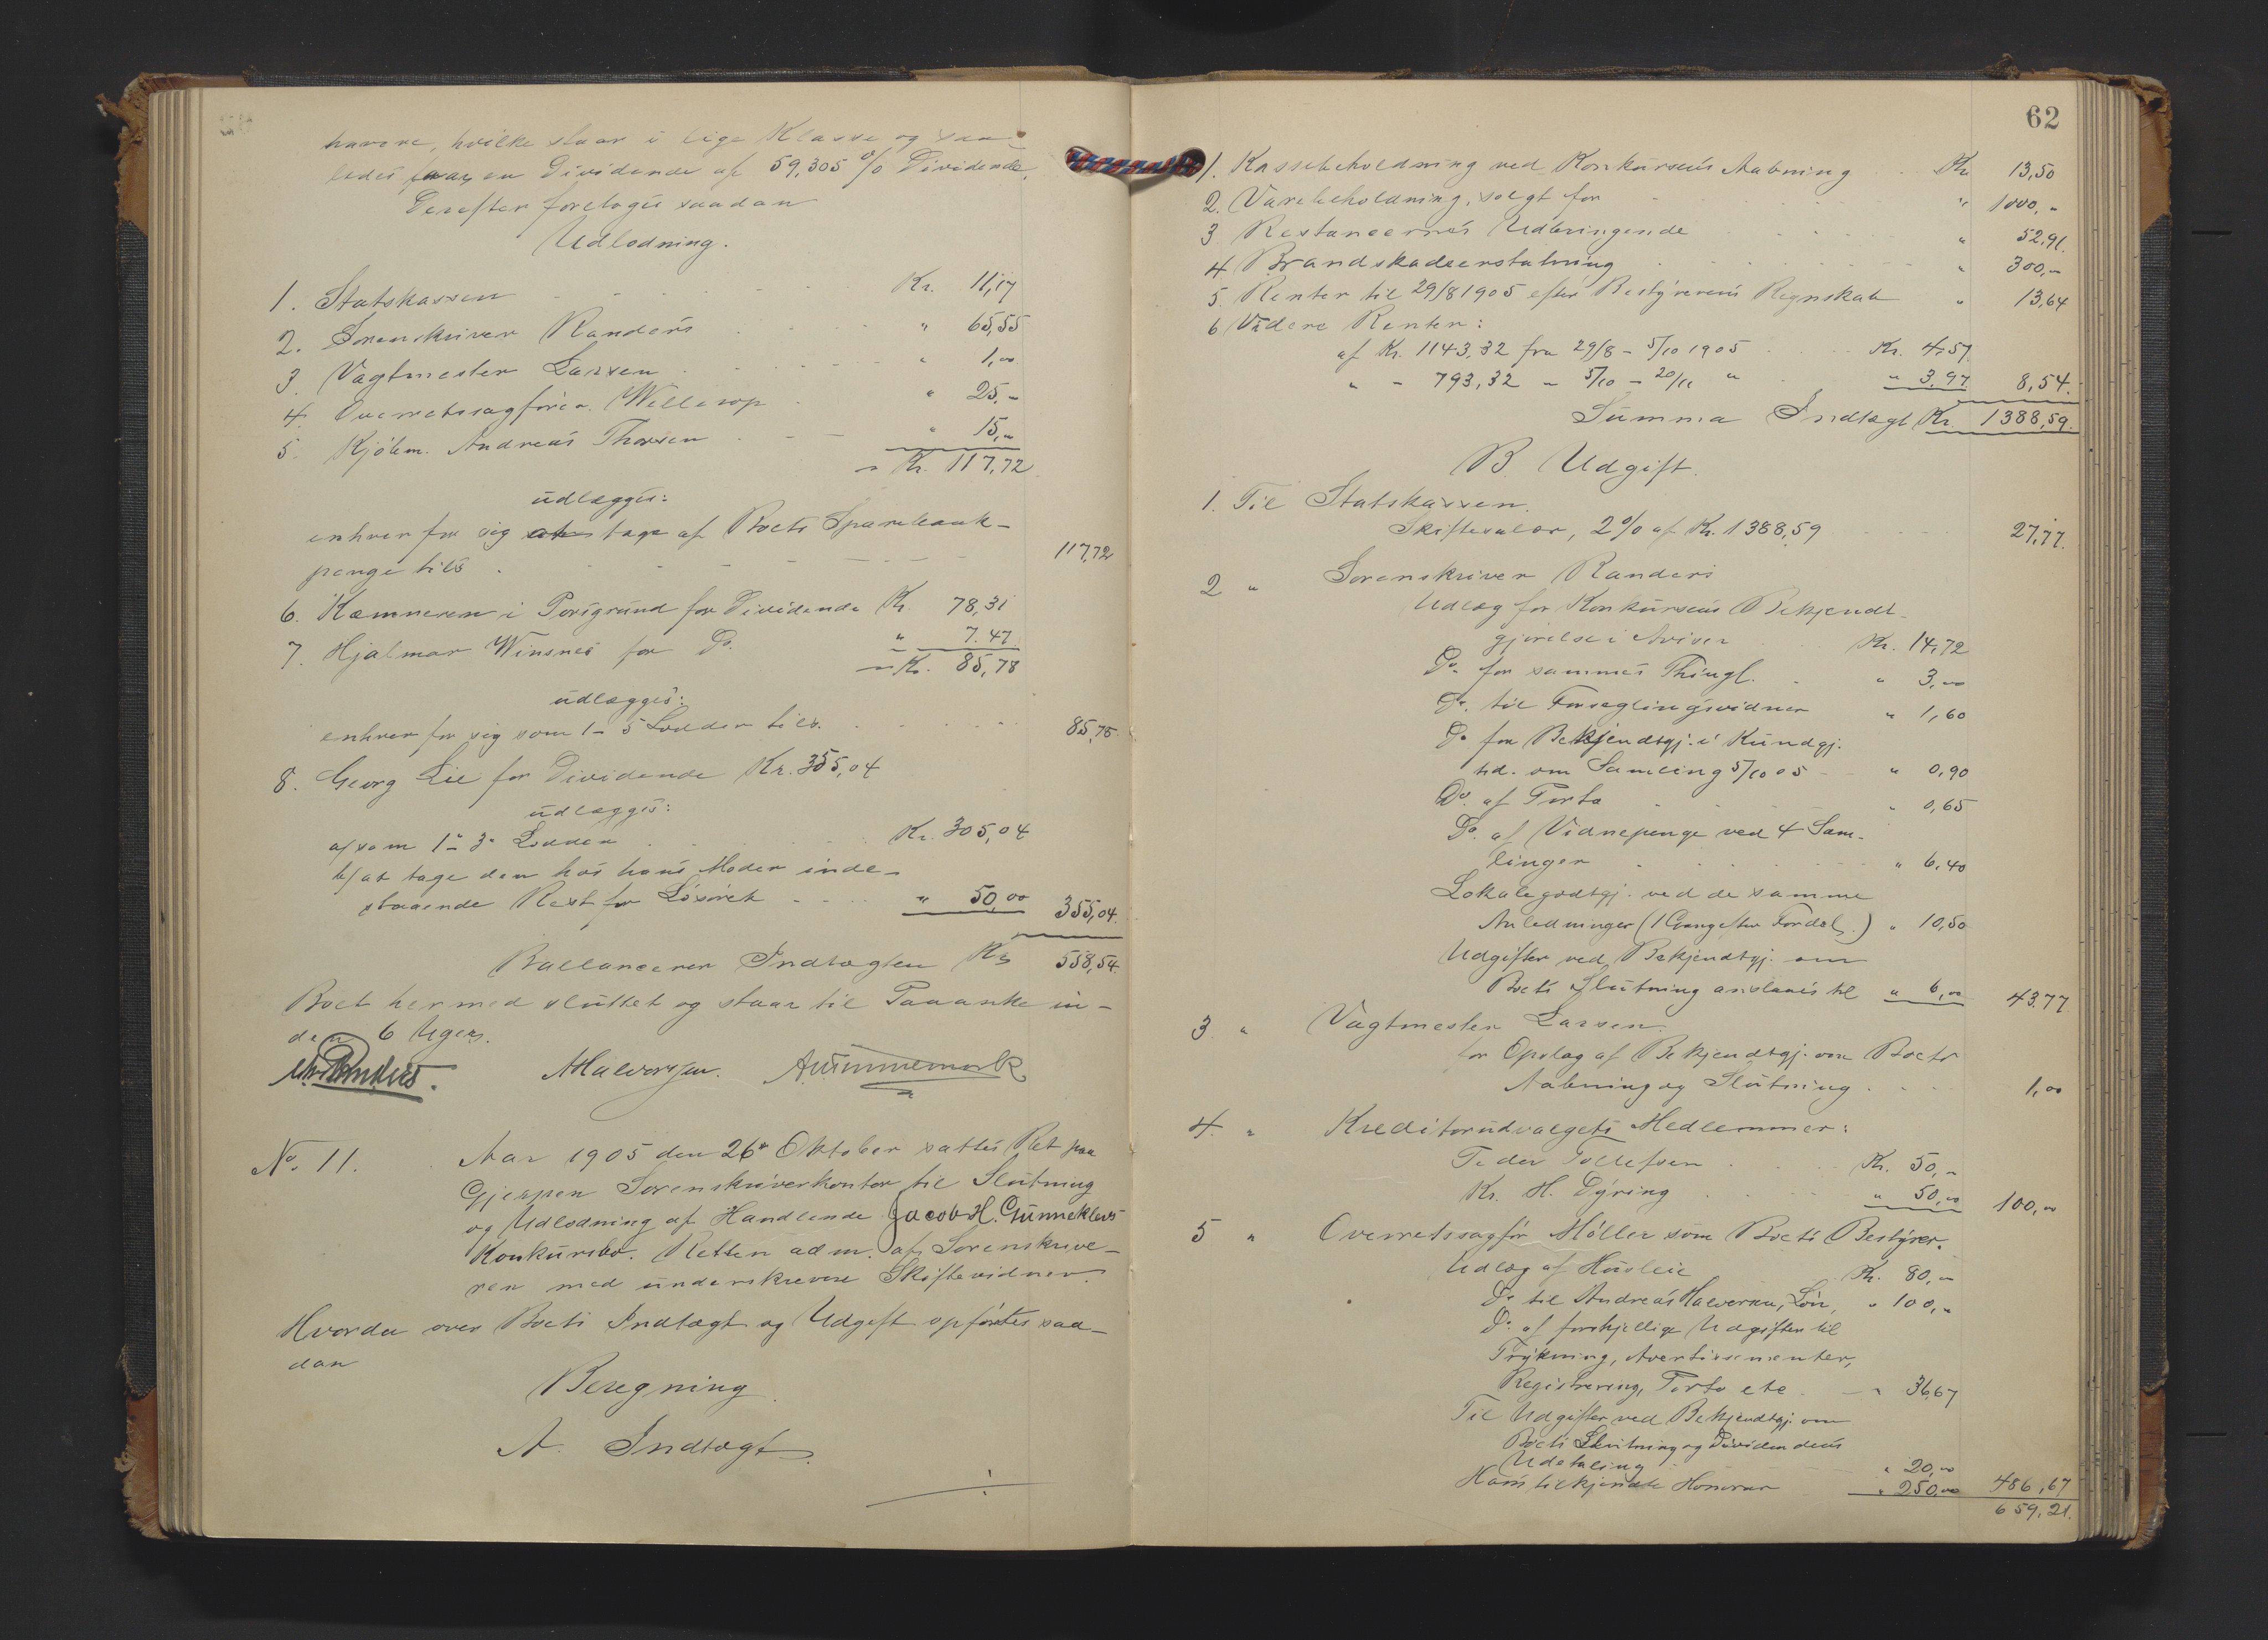 havere, hvilke staar i lige Klasse og saa-
ledes faar en Dividende af 59,305 % Dividende.
Derefter foretoges saadan
Udlodning.
1. Statskassen Kr. 11,17
2. Sorenskriver Randers " 65,55
3. Vagtmester Larsen " 1,00
4. Overretssagfører Willerop " 25,-
5. Kjøbm. Andreas Thorsen " 15,"
= Kr. 117,72
udlægges:
enhver for sig at tage af Boets Sparebank-
penge tils. 117,72
6. Kæmneren i Porsgrund for Dividende Kr. 78,31
7. Hjalmar Winsnes for Do. " 7.47
= Kr. 85,78
udlægges:
enhver for sig som 1-5 Lodder tils. 85,78
8. Georg Lie for Dividende Kr. 355,04
udlægges:
a/ som 1-3 Lodder Kr. 305,04
b/ at tage den hos hans Moder inde-
staaende Rest for Løsøret " 50,00 355,04.
Ballancerer Indtægten Kr 558,54
Boet hermed sluttet og staar til Paaanke in-
den 6 Uger.
Chr Randers. AHalvorsen. AGummemork
No. 11. Aar 1905 den 26de Oktober sattes Ret paa
Gjerpen Sorenskriverkontor til Slutning
og Udlodning af Handlende Jacob H. Gunneklevs
Konkursbo. Retten adm. af Sorenskrive-
ren med underskrevne Skiftevidner.
Hvorda over Boets Indtægt og Udgift opførtes saa-
dan
Beregning.
A. Indtægt.
62
1. Kassebeholdning ved Konkursens Aabning Kr 13,50
2. Varebeholdning, solgt for " 1000,-
3 Restancernes Udbringende " 52,91.
4 Brandskadeerstatning " 300,-
5 Renter til 29/8 1905 efter Bestyrerens Regnskab " 13,64
6 Videre Renter:
af Kr. 1143,32 fra 29/8 - 5/10 1905 Kr. 4,57
" - 793,32 - 5/10 - 20/11 " " 3,97 8,54.
Summa Indtægt Kr. 1388,59.
B. Udgift.
1. Til Statskassen.
Skiftesalær, 2% af Kr. 1388,59 27,77.
2 " Sorenskriver Randers
Udlæg for Konkursens Bekjendt-
gjørelse i Aviser Kr. 14,72
Do. for sammes Thingl. " 3,00
Do. til Forseglingsvidner " 1,60
Do for Bekjendtgj. i Kundgj.
tid. om Samling 5/10 05 " 0,90
Do. af Porto " 0,65
Do. af Vidnepenge ved 4 Sam-
linger " 6,40
Lokalegodtgj. ved de samme
Anledninger (1 Gang efter Fordel.) " 10,50
Udgifter ved Bekjendtgj. om
Boets Slutning anslaaes til " 6,00 43.77
3 " Vagtmester Larsen.
for Opslag af Bekjendtgj. om Boets
Aabning og Slutning. 1,00
4. " Kreditorudvalgets Medlemmer:
Peder Tollefsen Kr. 50,-
Kr. H. Dyring " 50,00 100,00
5 " Overretssagfør Møller som Boets Bestyrer.
Udlæg af Husleie Kr. 80,-
Do til Andreas Halvorsen, Løn, " 100,-
Do. af forskjellige Udgifter til
Trykning, Avertissementer,
Registrering, Porto etc. " 36,67
Til Udgifter ved Bekjendtgj. om
Boets Slutning og Dividendens
Udbetaling " 20,00
Hans tilkjendte Honorar " 250,00 486,67
659,21.